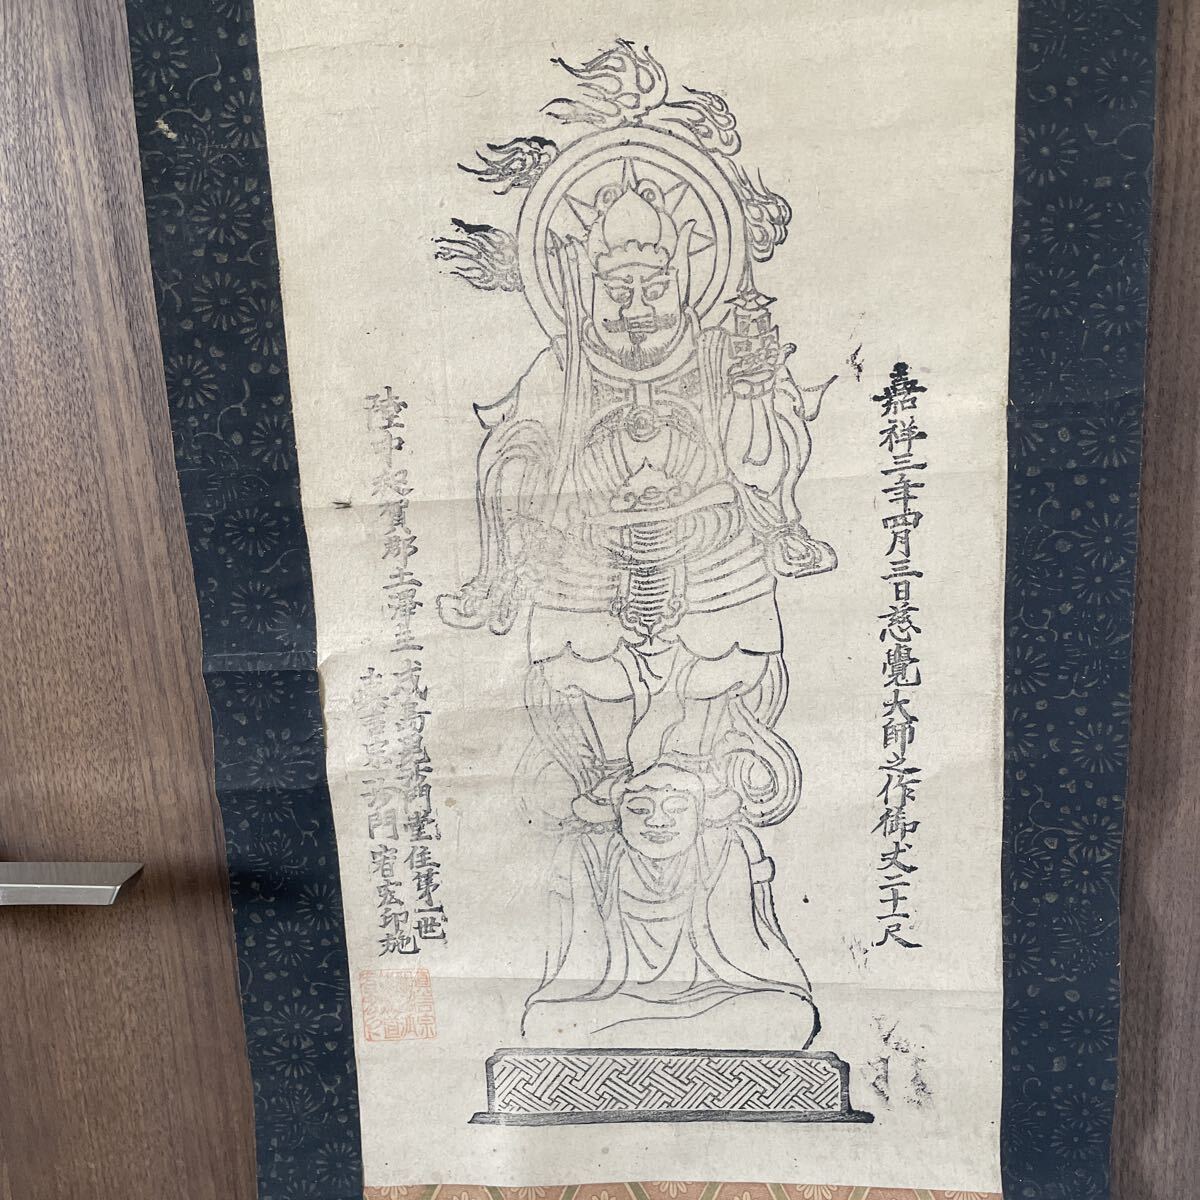 嘉祥三年四月三日慈覺大師之作御丈二十一尺
陸中和賀郡土澤在成島毘沙門堂住第一世
真言宗沙門宥宏印施